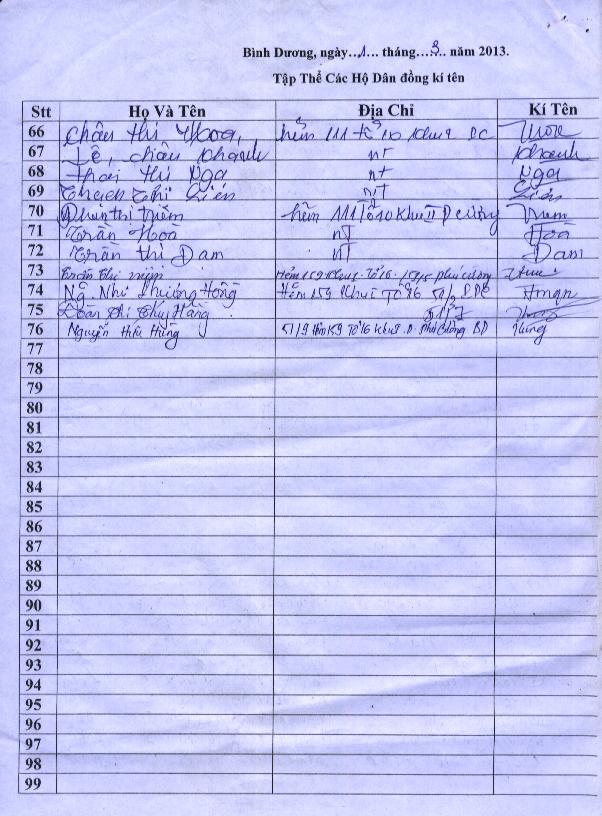 Bình Dương, ngày..1... tháng...3.. năm 2013.
Tập Thể Các Hộ Dân đồng kí tên
Stt Họ Và Tên Địa Chỉ Kí Tên
66 Châu thi Hoa, hẻm 111 tổ 10 khu 9 PC
67 Lê, châu khanh nt khanh
68 Thai thi Nga nt Nga
69 Thạch Thị Liên nT Liên
70 thi hẻm 111 Tổ 10 khu II P cường
71 Trần Hoà nT Hoà
72 Trần thi Đam nT Đam
73 Trần Thị Hẻm 159 khu 9 Tổ 16 Phú cường
74 Ng. Như Phương Hồng Hẻm 159 Khu Tổ 96
75 Đoàn Thị Thúy Hằng
76 Nguyễn Hữu Hùng 51/9 Hẻm 159 Tổ 16 khu 9 P. Phú Cường BD Hùng
77
78
79
80
81
82
83
84
85
86
87
88
89
90
91
92
93
94
95
96
97
98
99